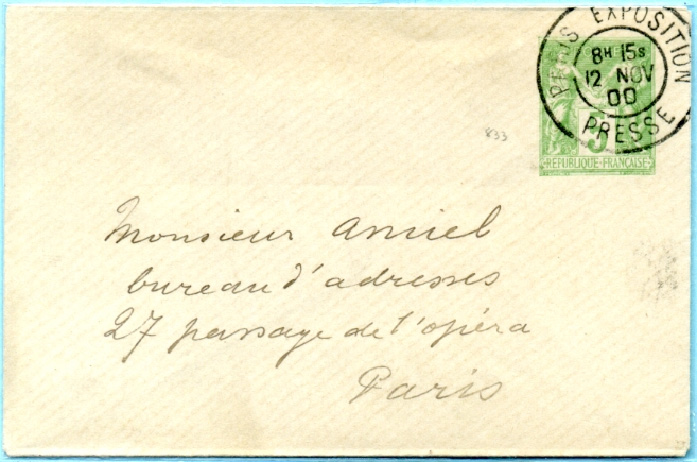 PARIS EXPOSITION
8H 15S
12 NOV
00
PRESSE
5
REPUBLIQUE·FRANÇAISE
833
Monsieur Amiel
bureau d'adresses
27 passage de l'opéra
Paris